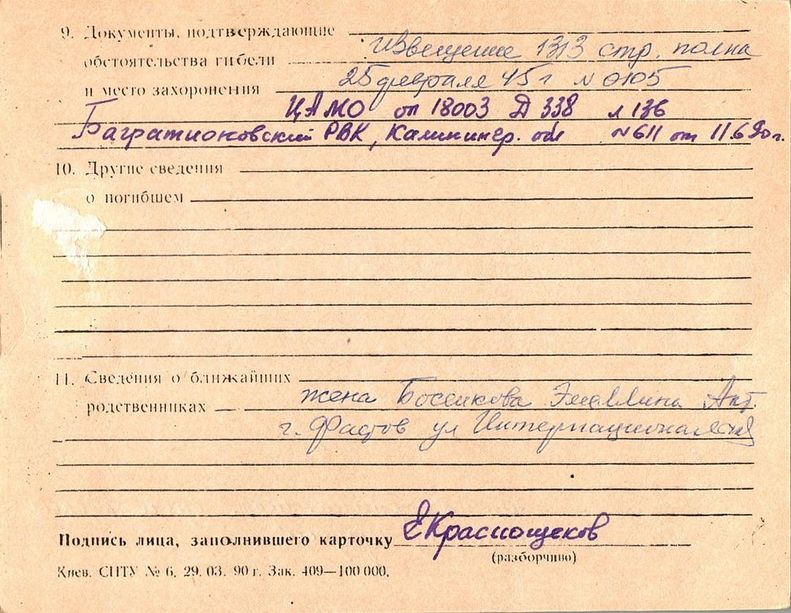 9. Документы, подтверждающие
обстоятельства гибели Извещение 1313 стр. полка
и место захоронения 25 февраля 45 г N 0105
ЦАМО оп 18003 Д 338 л 136
Багратионовский РВК, Калинингр. обл N 611 от 11.6.90 г.
10. Другие сведения
о погибшем
11. Сведения о ближайших
родственниках жена
г. Фастов ул Интернациональная
Подпись лица, заполнившего карточку ЕКраснощеков
(разборчиво)
Киев. СПТУ № 6, 29. 03. 90 г. Зак. 409—100 000.